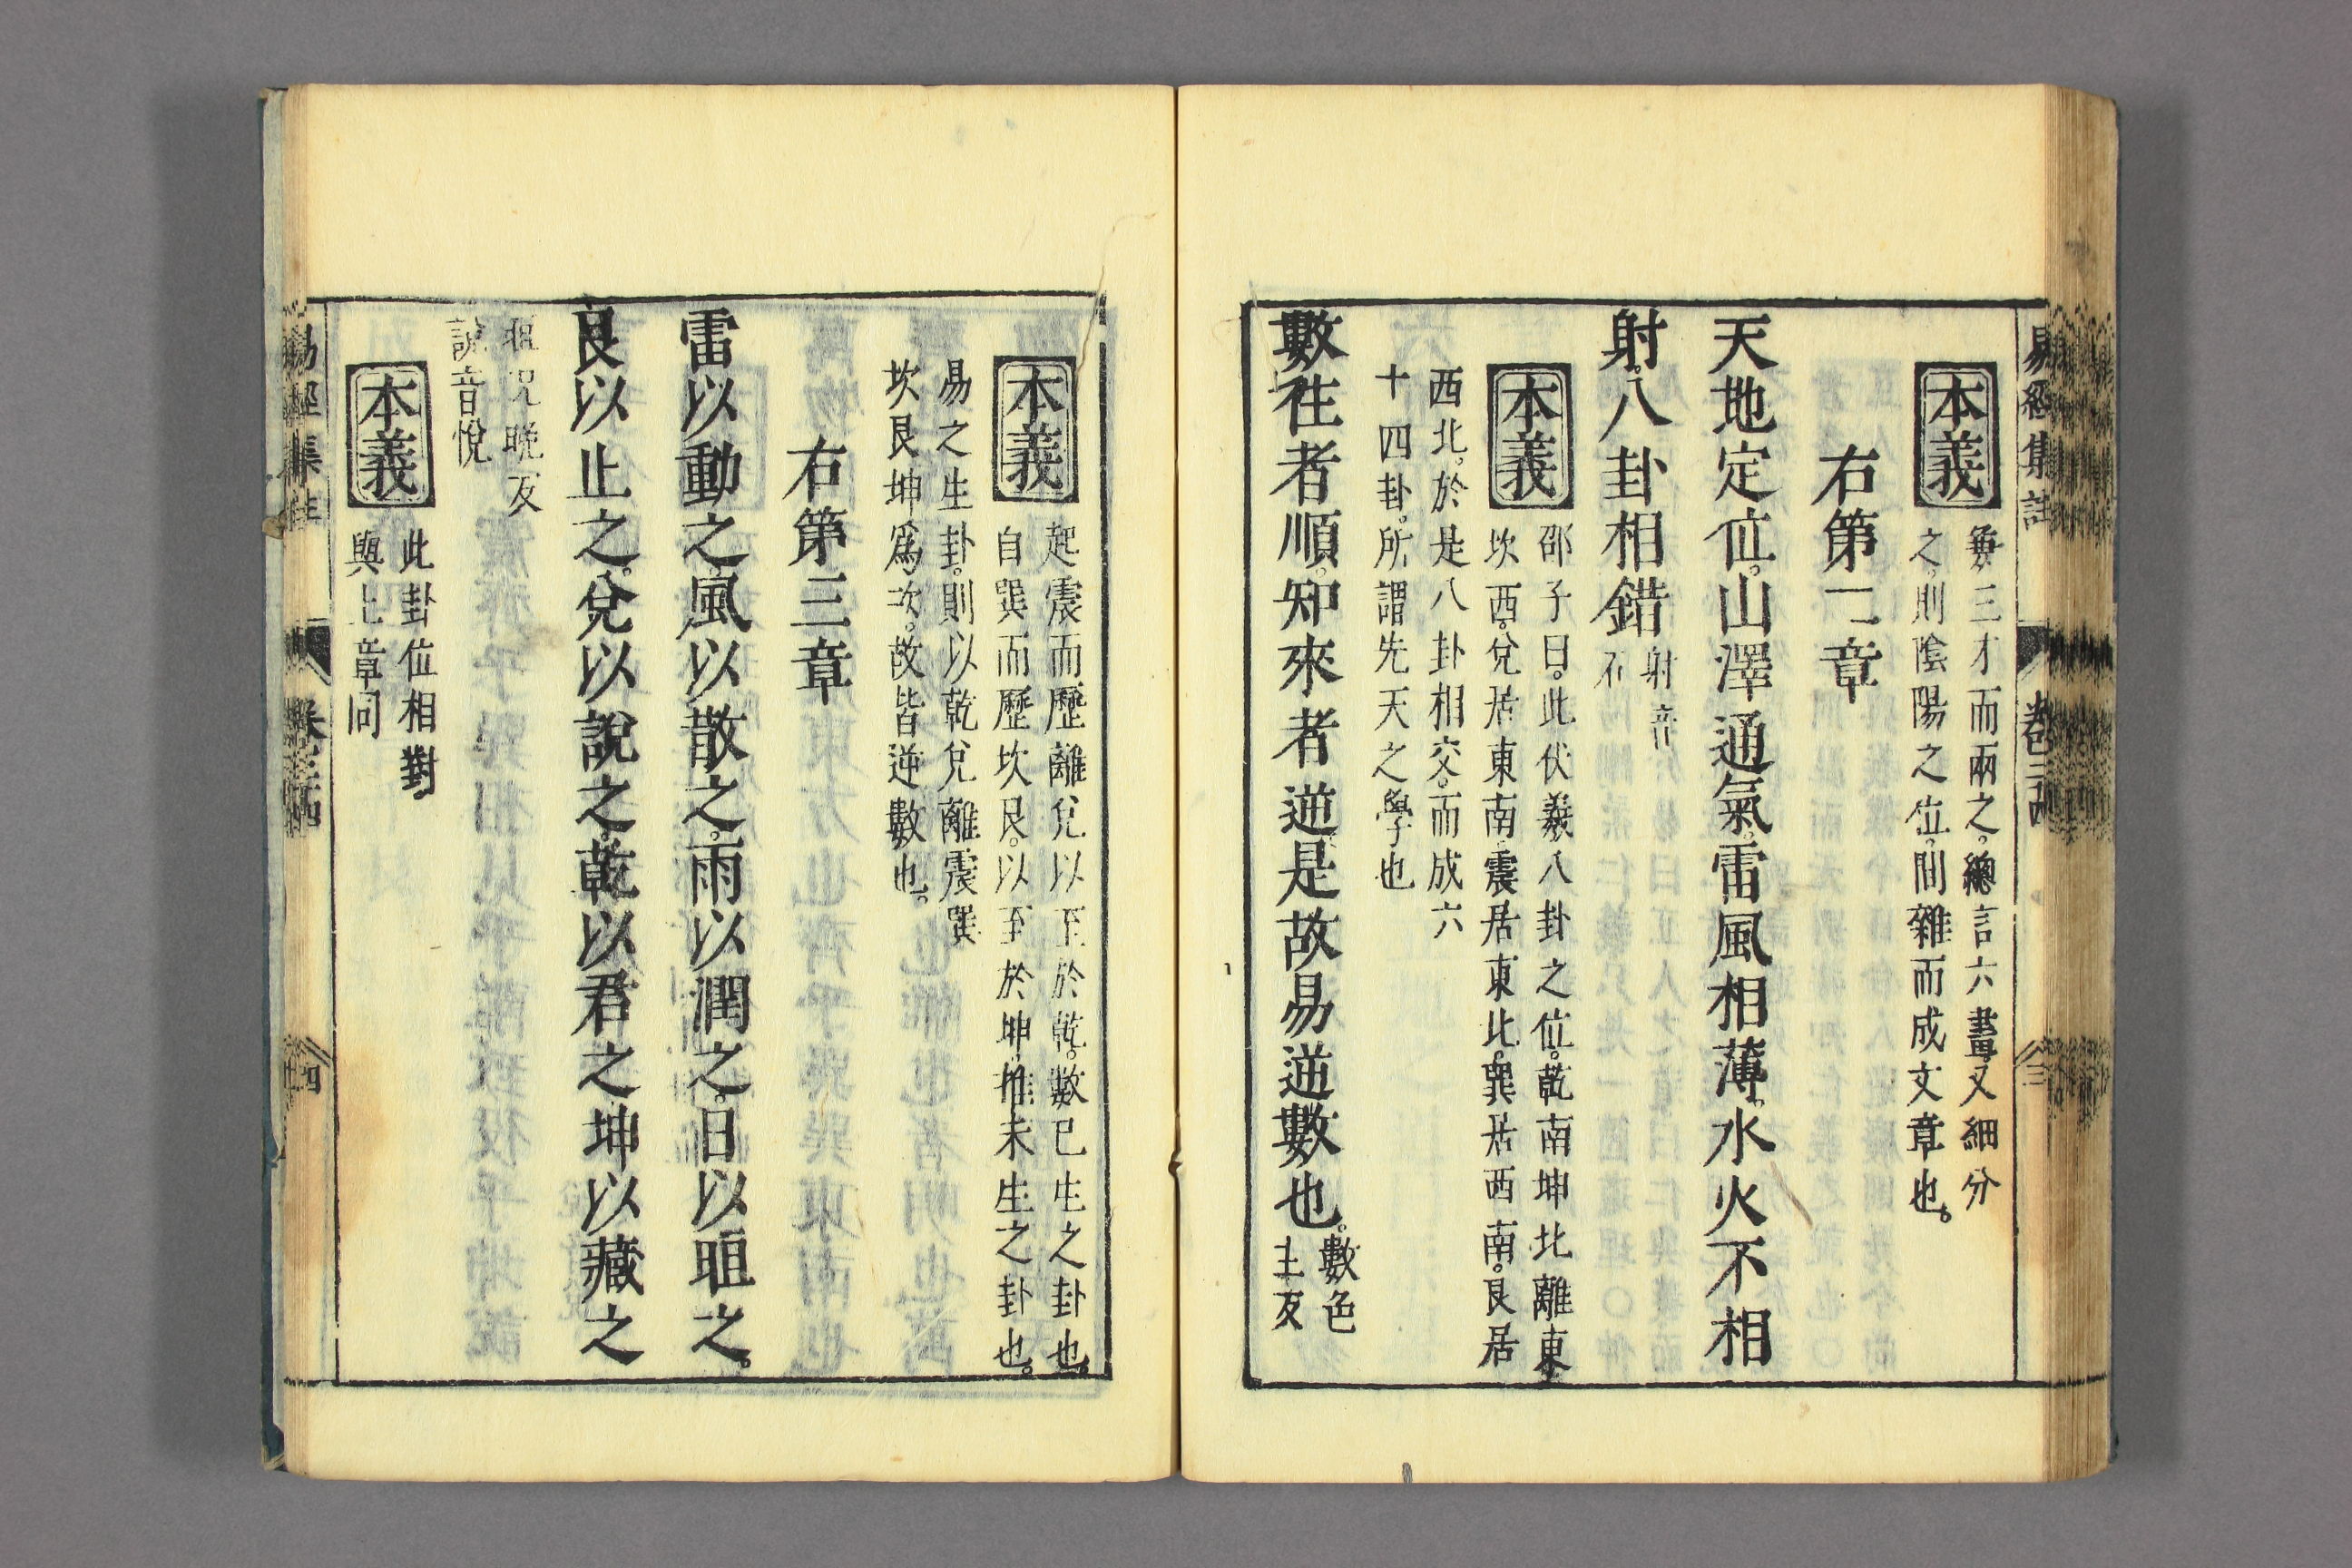 易經集註 卷二十四 三
本義
兼三才而兩之。總言六畫。又細分
之。則陰陽之位。間雜而成文章也。
右第二章
天地定位。山澤通氣。雷風相薄。水火不相
射。八卦相錯 射音
石
本義
邵子曰。此伏羲八卦之位。乾南坤北離東
坎西。兌居東南。震居東北。巽居西南。艮居
西北。於是八卦相交。而成六
十四卦。所謂先天之學也
數往者順。知來者逆是故易逆數也。 數色
主反
本義
起震而歷離兌以至於乾。數已生之卦也。
自巽而歷坎艮。以至於坤。推未生之卦也。
易之生卦。則以乾兌離震巽
坎艮坤爲次。故皆逆數也。
右第三章
雷以動之。風以散之。雨以潤之。日以晅之。
艮以止之。兌以說之。乾以君之坤以藏之
晅況晚反
說音悅
本義
此卦位相對。
與上章同
易經集註